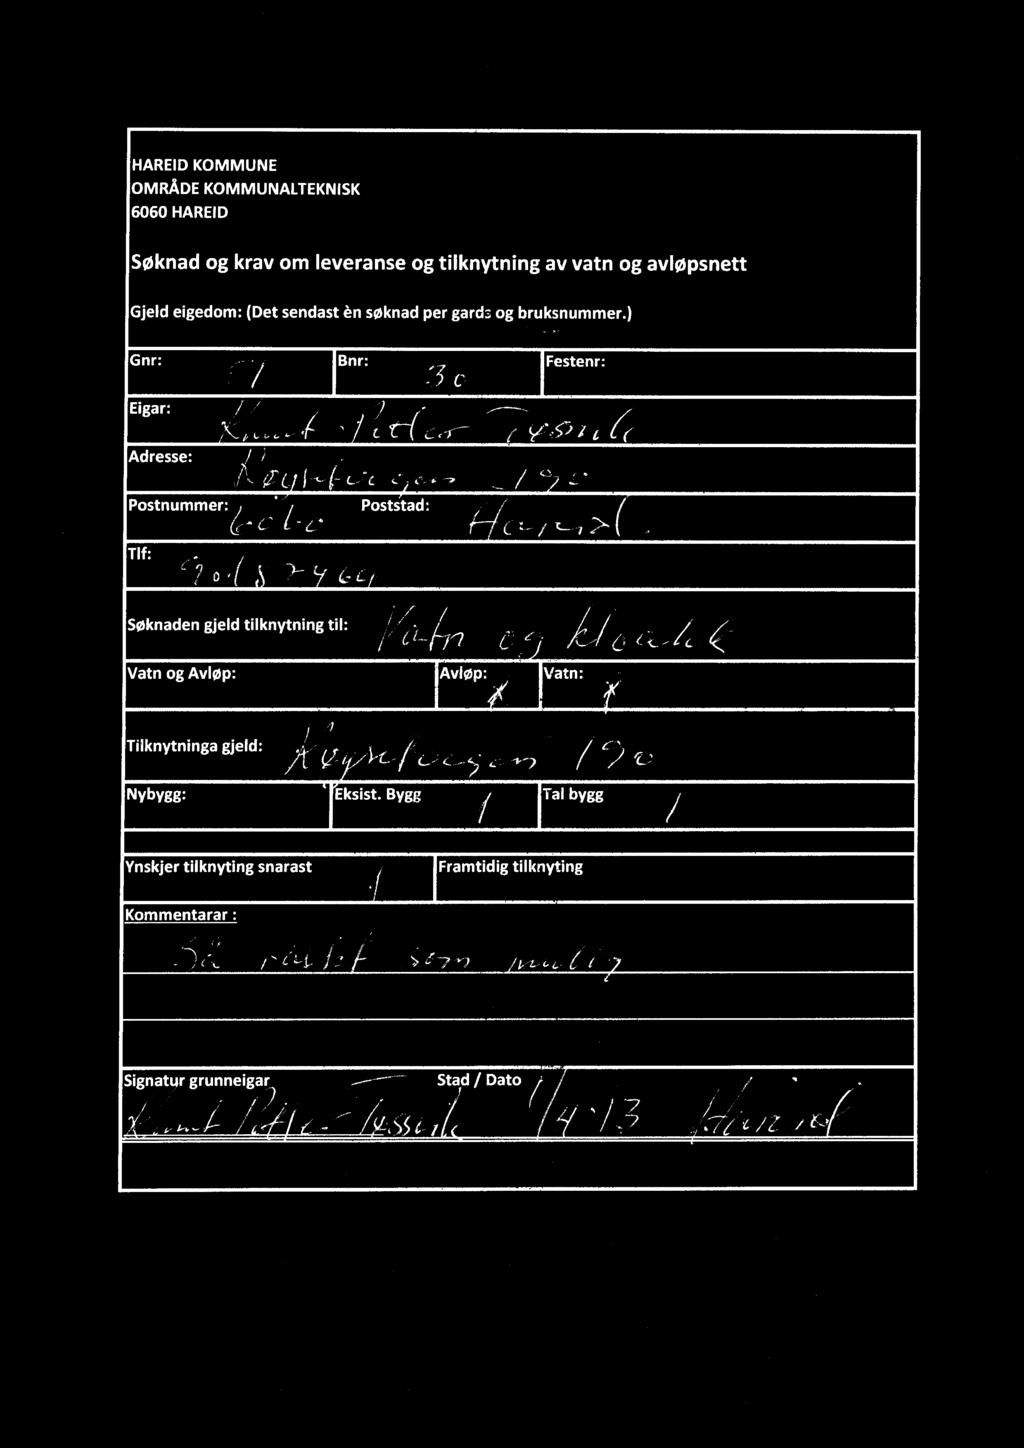 HAREID KOMMUNE
OMRÅDE KOMMUNALTEKNISK
6060 HAREID
Søknad og krav om leveranse og tilknytning av vatn og avløpsnett
Gjeld eigedom: (Det sendast èn søknad per gards og bruksnummer.)
Gnr: Bnr: 30 Festenr:
Eigar: Knut-Petter
Adresse: 190
Postnummer: 6060 Poststad: Hareid.
Tlf:
Søknaden gjeld tilknytning til: Vatn og kloakk
Vatn og Avløp: Avløp: X Vatn: X
Tilknytninga gjeld: 190
Nybygg: Eksist. Bygg / Tal bygg /
Ynskjer tilknyting snarast / Framtidig tilknyting
Kommentarar :
Så raskt som mulig
Signatur grunneigar Stad / Dato
Knut Petter 1/4-13 Hareid